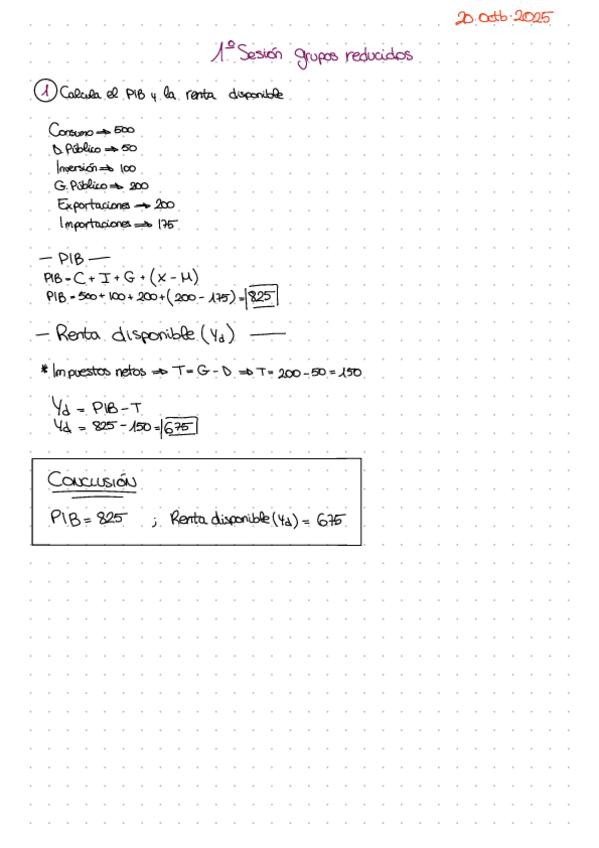 20 Octb 2025
1º Sesión grupos reducidos
1 Calcula el PIB y la renta disponible
Consumo → 500
D. Público → 50
Inversión → 100
G. Público → 200
Exportaciones → 200
Importaciones → 175
— PIB —
PIB = C + I + G + (X - M)
PIB = 500 + 100 + 200 + (200 - 175) = 825
— Renta disponible (Yd) —
* Impuestos netos ⇒ T = G - D ⇒ T = 200 - 50 = 150
Yd = PIB - T
Yd = 825 - 150 = 675
CONCLUSIÓN
PIB = 825 ; Renta disponible (Yd) = 675